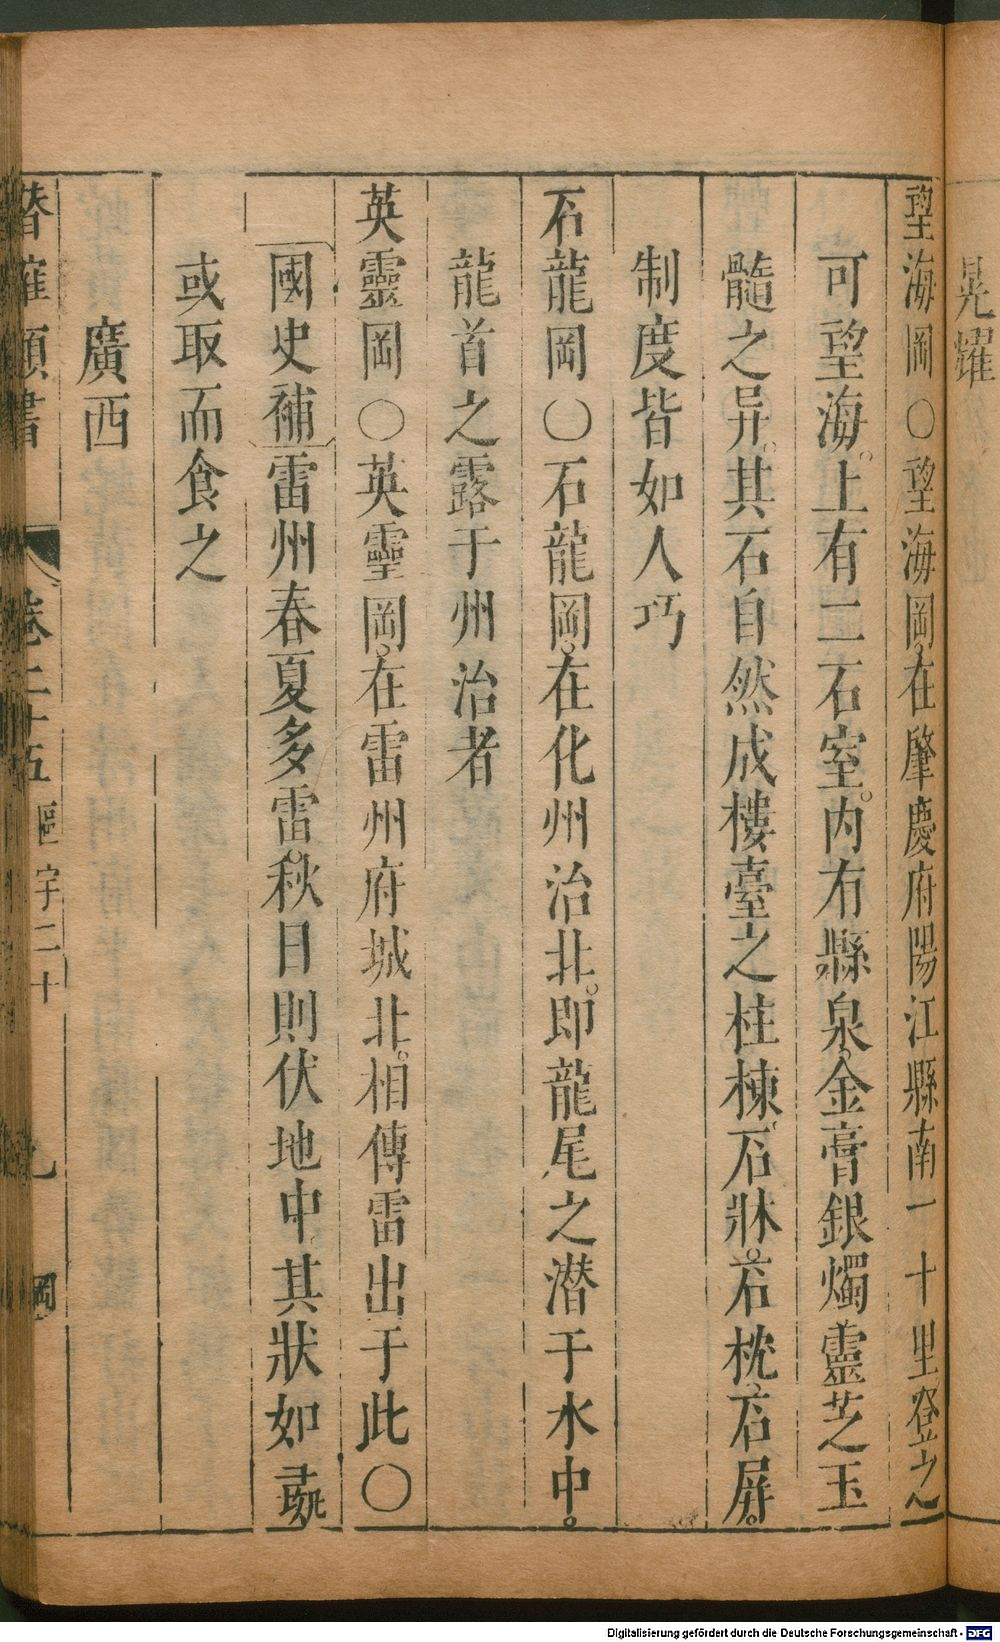 晃耀
望海岡○望海岡。在肇慶府陽江縣南一十里登之
可望海。上有二石室。内有縣泉。金膏銀燭靈芝玉
髓之异。其石自然成樓臺之柱棟。石牀。石枕。石屏。
制度皆如人巧
石龍岡○石龍岡。在化州治北。即龍尾之潜于水中。
龍首之露于州治者
英靈岡○英靈岡。在雷州府城北。相傳雷出于此○
國史補雷州春夏多雷。秋日則伏地中其狀如
或取而食之
廣西
類書 卷二十五 區字二十 九 岡
Digitalisierung gefördert durch die Deutsche Forschungsgemeinschaft - DFG